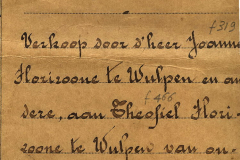 f 319
Verkoop door d'heer Joanne
Florizoone te Wulpen en an
dere, aan Theofiel Flori-
f 466
zoone te Wulpen van on-